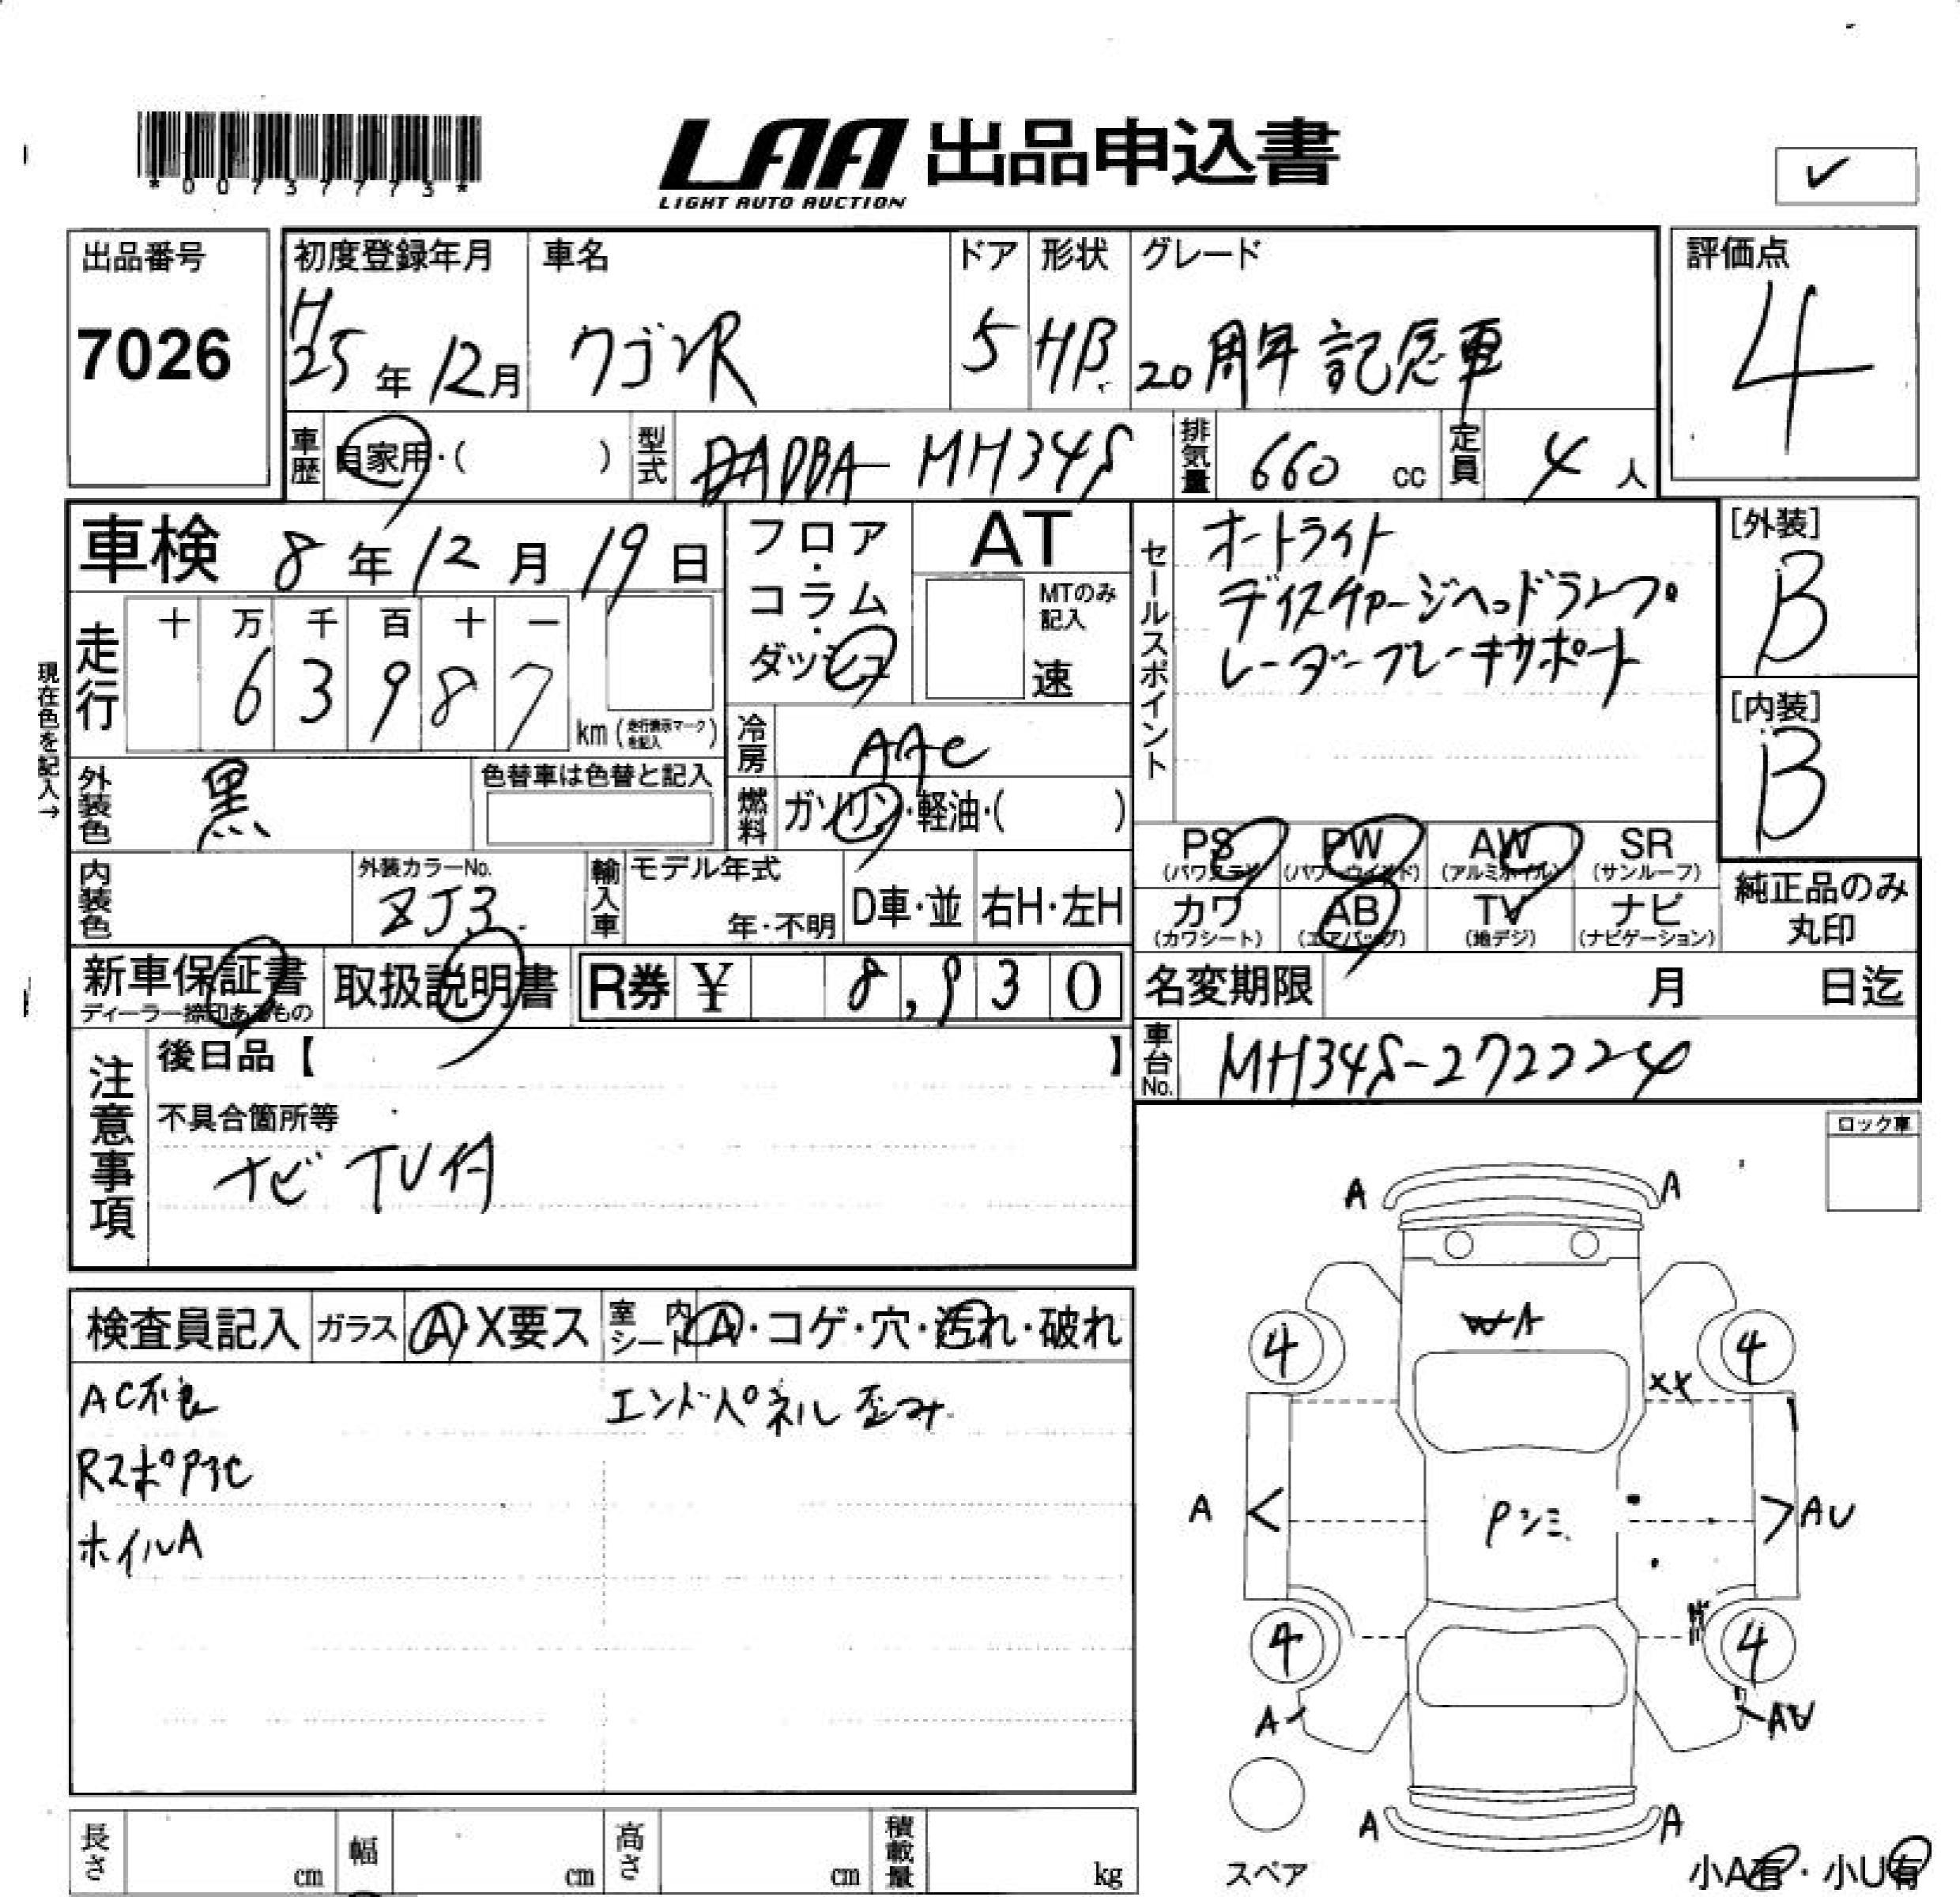 *00737773*
LAA 出品申込書
LIGHT AUTO AUCTION
✓
出品番号
7026
初度登録年月
H25年12月
車名
ワゴンR
ドア
5
形状
HB
グレード
20周年記念車
評価点
4
車歴 自家用・( )
型式 DBA MH34S
排気量 660 cc
定員 4 人
車検 8年12月19日
フロア・コラム・ダッシュ
AT
MTのみ記入
速
セールスポイント
オートライト
ディスチャージヘッドランプ
レーダーブレーキサポート
[外装]
B
[内装]
B
現在色を記入→
走行
十 万 千 百 十 一
6 3 9 8 7
km (走行表示マークを記入)
冷房 AAC
外装色 黒
色替車は色替と記入
燃料 ガソリン・軽油・( )
PS (パワステ)
PW (パワーウインド)
AW (アルミホイル)
SR (サンルーフ)
カワ (カワシート)
AB (エアバッグ)
TV (地デジ)
ナビ (ナビゲーション)
純正品のみ丸印
内装色
外装カラーNo.
ZJ3
輸入車
モデル年式
年・不明
D車・並
右H・左H
新車保証書
ディーラー捺印あるもの
取扱説明書
R券 ¥ 8,930
名変期限 月 日迄
車台No. MH34S-272224
注意事項
後日品【 】
不具合箇所等
ナビ TV付
ロック車
検査員記入
ガラス A・X要ス
室内シート A・コゲ・穴・汚れ・破れ
AC不良
エンドパネル歪み
Rスポア化
ホイルA
A A
WA
4 4
XX
A
Pシミ
AU
4 4
A AU
A A
スペア
小A有・小U有
長さ cm
幅 cm
高さ cm
積載量 kg